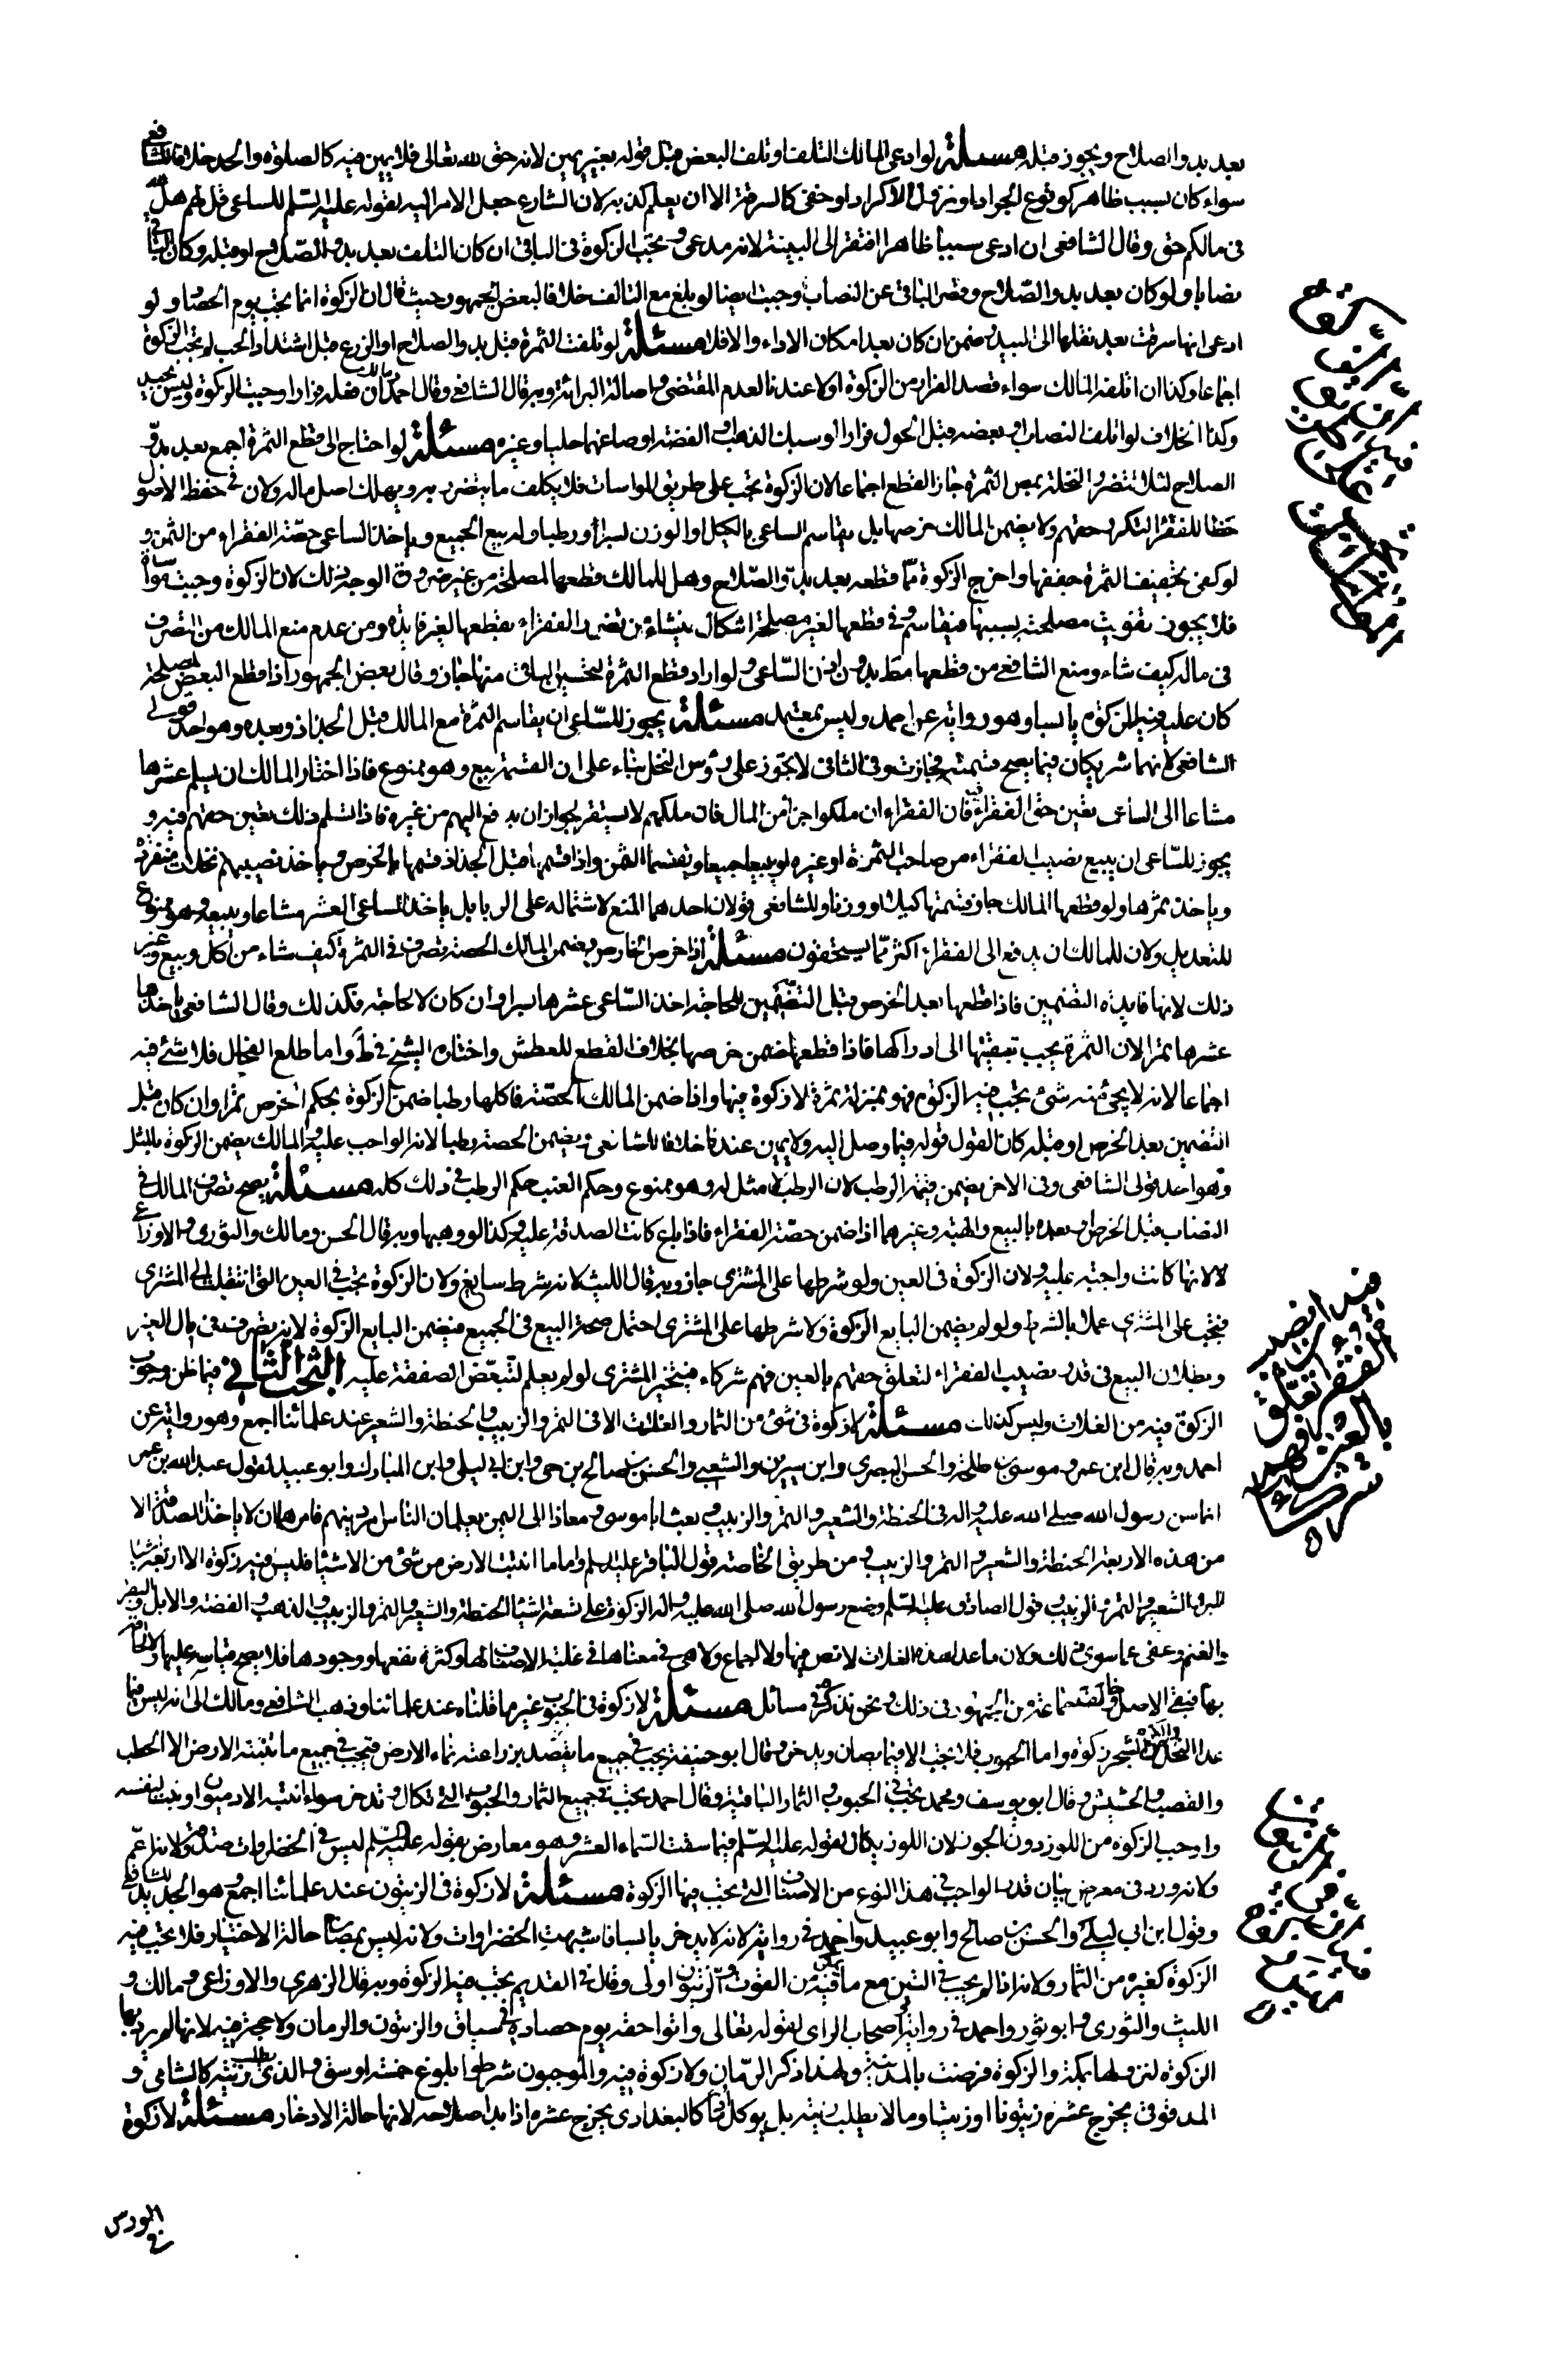 بعد بدو الصلاح ويجوز قبله مسئلة لو ادعى المالك التلف او تلف البعض قبل قوله بغير يمين لانه حق لله تعالى فلا يمين فيه كالصلوة والحد خلافا للشافعي
سواء كان بسبب ظاهر كوقوع الجراد او نزول الاكراد او خفى كالسرقة الا ان يعلم كذبه لان الشارع جعل الامر اليه بقوله عليه السّلم للساعى قل لهم هل لله
فى مالكم حق وقال الشافعى ان ادعى سببا ظاهرا افتقر الى البينة لانه مدعى ويجب الزكوة فى الباقى ان كان التلف بعد بدو الصّلاح او قبله وكان الباقى
نصابا ولو كان بعد بدو الصّلاح وقصر الباقى عن النصاب وجبت ايضا لو بلغ مع التالف خلافا لبعض الجمهور حيث قال ان الزكوة انما يجب يوم الحصاد ولو
ادعى انها سرقت بعد نقلها الى البيدر ضمن ان كان بعد امكان الاداء والا فلا مسئلة لو تلفت الثمرة قبل بدو الصلاح او الزرع قبل اشتداد الحب لم يجب الزكوة
اجماعا وكذا ان اتلفه المالك سواء قصد الفرار من الزكوة او لا عندنا لعدم المقتضى واصالة البرائة وبه قال الشافعى وقال احمد ومالك ان فعله فرارا وجبت الزكوة وليس بجيد
وكذا الخلاف لو اتلف النصاب او بعضه قبل الحول فرارا او سبك الذهب او الفضة او صاغهما حليا او غيره مسئلة لو احتاج الى قطع الثمرة اجمع بعد بدوّ
الصلاح لئلا تتضرر النخلة بمص الثمرة جاز القطع اجماعا لان الزكوة تجب على طريق المواسات فلا يكلف ما يتضرر به ويهلك اصل ماله ولان فى حفظ الاصول
حظا للفقراء لتكرر حقهم ولا يضمن المالك خرصها بل يقاسم الساعى بالكيل او الوزن بسرا او رطبا وله بيع الجميع وياخذ الساعى حصّة الفقراء من الثمن و
لو كفى تخفيف الثمرة خففها واخرج الزكوة ممّا قطعه بعد بدوّ الصّلاح وهل للمالك قطعها لمصلحة من غير ضرورة الوجه ذلك لان الزكوة وجبت مواساة
فلا يجوز تفويت مصلحته بسببها فيقاسم وفى قطعها لغير مصلحة اشكال ينشاء من تضرر الفقراء بقطعها لغير فايدة ومن عدم منع المالك من التصرف
فى ماله كيف شاء ومنع الشافعى من قطعها مط بدون اذن السّاعى ولو اراد قطع الثمرة لتحسين الباقى منها جاز وقال بعض الجمهور اذا قطع البعض لمصلحة
كان عليه فيه الزكوة يابسا وهو رواية عن احمد وليس بمعتمد مسئلة يجوز للسّاعى ان يقاسم الثمرة مع المالك قبل الجذاذ وبعده وهو احد قولى
الشافعى لانهما شريكان فيما يصح قسمته فجازت وفى الثانى لا يجوز على رؤس النخل بناء على ان القسمة بيع وهو ممنوع فاذا اختار المالك ان يسلم عشرها
مشاعا الى الساعى تعين حق الفقراء فيه فان الفقراء ان ملكوا جزأ من المال فان ملكهم لا يستقر لجواز ان يدفع اليهم من غيره فاذا تسلم ذلك تعين حقهم فيه و
يجوز للسّاعى ان يبيع نصيب الفقراء من صاحب الثمرة او غيره او يبيعا جميعا ويقتسما الثمن واذا قسمها قبل الجذاذ قسمها بالخرص وياخذ نصيبهم نخلات منفردة
وياخذ ثمرها ولو قطعها المالك جاز قسمتها كيلا ووزنا وللشافعى قولان احدهما المنع لاشتماله على الربا بل ياخذ الساعى العشر مشاعا ويبيعه وهو ممنوع
للتعديل ولان للمالك ان يدفع الى الفقراء اكثر ممّا يستحقون مسئلة اذا خرص الخارص وضمن المالك الحصة تصرف فى الثمرة كيف شاء من اكل وبيع وغير
ذلك لانها فايدة التضمين فاذا قطعها بعد الخرص قبل التضمين للحاجة اخذ السّاعى عشرها بسرا وان كان لا لحاجة فكذلك وقال الشافعى ياخذها
عشرها تمرا لان الثمرة يجب تبقيتها الى ادراكها فاذا قطعها ضمن خرصها بخلاف القطع للعطش واختاره الشيخ فى ط واما طلع الفحال فلا شئ فيه
اجماعا لانه لا يجئ منه شئ يجب فيه الزكوة فهو بمنزلة ثمرة لا زكوة فيها واذا ضمن المالك الحصّة فاكلها رطبا ضمن الزكوة بحكم الخرص تمرا وان كان قبل
التضمين بعد الخرص او قبله كان القول قوله فيما وصل اليه ولا يمين عندنا خلافا للشافعى ويضمن الحصة رطبا لانه الواجب عليه والمالك يضمن الزكوة بالمثل
وهو احد قولى الشافعى وفى الاخر يضمن قيمة الرطب لان الرطب لا مثل له وهو ممنوع وحكم العنب حكم الرطب فى ذلك كله مسئلة يصح تصرف المالك فى
النصاب قبل الخرص وبعده بالبيع والهبة وغيرهما اذا ضمن حصّة الفقراء فاذا باع كانت الصدقة عليه وكذا لو وهبها وبه قال الحسن ومالك والثورى والاوزاعى
لا لانها كانت واجبة عليه ولان الزكوة فى العين ولو شرطها على المشترى جاز وبه قال الليث لانه شرط سايغ ولان الزكوة تجب فى العين التى انتقلت الى المشترى
فتجب على المشترى عملا بالشرط ولو لم يضمن البايع الزكوة ولا شرطها على المشترى احتمل صحة البيع فى الجميع فيضمن البايع الزكوة لانه تصرف فى مال الغير
وبطلان البيع فى قدر نصيب الفقراء لتعلق حقهم بالعين فهم شركاء فيتخير المشترى لو لم يعلم لتبعّض الصفقة عليه البحث الثانى فيما ظن وجوب
الزكوة فيه من الغلات وليس كذلك مسئلة لا زكوة فى شئ من الثمار والغلات الا فى التمر والزبيب والحنطة والشعير عند علمائنا اجمع وهو رواية عن
احمد وبه قال ابن عمر وموسى بن طلحة والحسن البصرى وابن سيرين والشعبى والحسن بن صالح بن حى وابن ابى ليلى وابن المبارك وابو عبيد لقول عبد الله بن عمر
انما سن رسول الله صلى الله عليه واله فى الحنطة والشعير والتمر والزبيب وبعث ابا موسى ومعاذا الى اليمن يعلمان الناس امر دينهم فامرهما ان لا ياخذا الصدقة الا
من هذه الاربعة الحنطة والشعير والتمر والزبيب ومن طريق الخاصة قول الباقر عليه السلم واما ما انبتت الارض من شئ من الاشياء فليس فيه زكوة الا اربعة اشياء
البر والشعير والتمر والزبيب وقول الصادق عليه السّلم وضع رسول الله صلى الله عليه واله الزكوة على تسعة اشياء الحنطة والشعير والتمر والزبيب والذهب والفضة والابل والبقر
والغنم وعفى عما سوى ذلك ولان ما عدا هذه الغلات لا نص فيها ولا اجماع ولا هى فى معناها فى غلبة الاقتيات لها وكثرة نفعها ووجودها فلا يصح قياسه عليها ولا الحاقه
بها فبقى الاصل وخالفنا جماعة من الجمهور فى ذلك ونحن نذكره فى مسائل مسئلة لا زكوة فى الحبوب غير ما قلناه عند علمائنا وذهب الشافعى ومالك الى انه ليس فيما
عدا النخل والكرم من الشجر زكوة واما الحبوب فلا تجب الا فيما يصان ويدخر وقال ابو حنيفة يجب فى جميع ما يقصد بزراعته نماء الارض فتجب فى جميع ما تنبته الارض الا الحطب
والقصب والحشيش وقال ابو يوسف ومحمد تجب فى الحبوب والثمار الباقية وقال احمد تجب فى جميع الثمار والحبوب التى تكال وتدخر سواء انبته الادميون او نبت بنفسه
واوجب الزكوة من اللوز دون الجوز لان اللوز يكال لقوله عليه السّلم فيما سقت السّماء العشر وهو معارض بقوله عليه السّلم ليس فى الخضراوات صدقة ولانه اعمّ
ولانه ورد فى معرض بيان قدر الواجب فى هذا النوع من الاصناف التى تجب فيها الزكوة مسئلة لا زكوة فى الزيتون عند علمائنا اجمع وهو الجديد للشافعى
وقول ابن ابى ليلى والحسن بن صالح وابو عبيد واحمد فى رواية لانه لا يدخر يابسا فاشبهت الخضراوات ولانه ليس بمقتات حالة الاختيار فلا تجب فيه
الزكوة كغيره من الثمار ولانه اذا لم يجب فى التين مع ما فيه من القوت والزيتون اولى وقال فى القديم يجب فيه الزكوة وبه قال الزهرى والاوزاعى ومالك و
الليث والثورى وابو ثور واحمد فى رواية واصحاب الراى لقوله تعالى واتوا حقه يوم حصاده فى سياق والزيتون والرمان ولا حجة فيه لانها لم يرد بها
الزكوة لنزولها بمكة والزكوة فرضت بالمدينة ولهذا ذكر الرّمان ولا زكوة فيه والموجبون شرطوا بلوغ خمسة اوسق والذى يطلب زيته كالشامى و
المدقوق يخرج عشره زيتونا او زيتا وما لا يطلب زيته بل يوكل كالبغدادى يخرج عشره اذا بدا صلاحه لانها حالة الادخار مسئلة لا زكوة